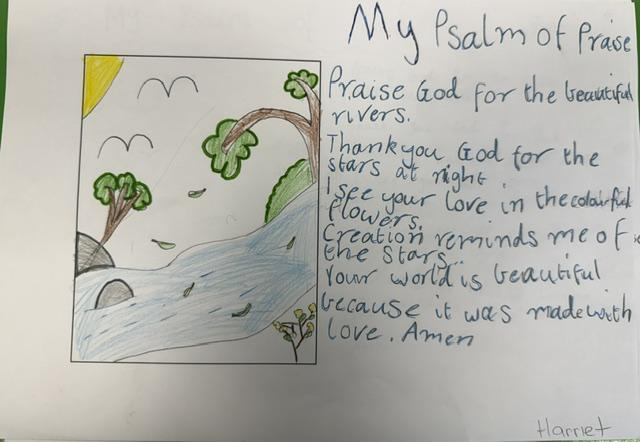 My Psalm of Praise
Praise God for the beautiful
rivers.
Thankyou God for the
stars at night
I see your love in the colourful
flowers.
Creation reminds me of
the stars.
Your world is beautiful
because it was made with
love. Amen
Harriet